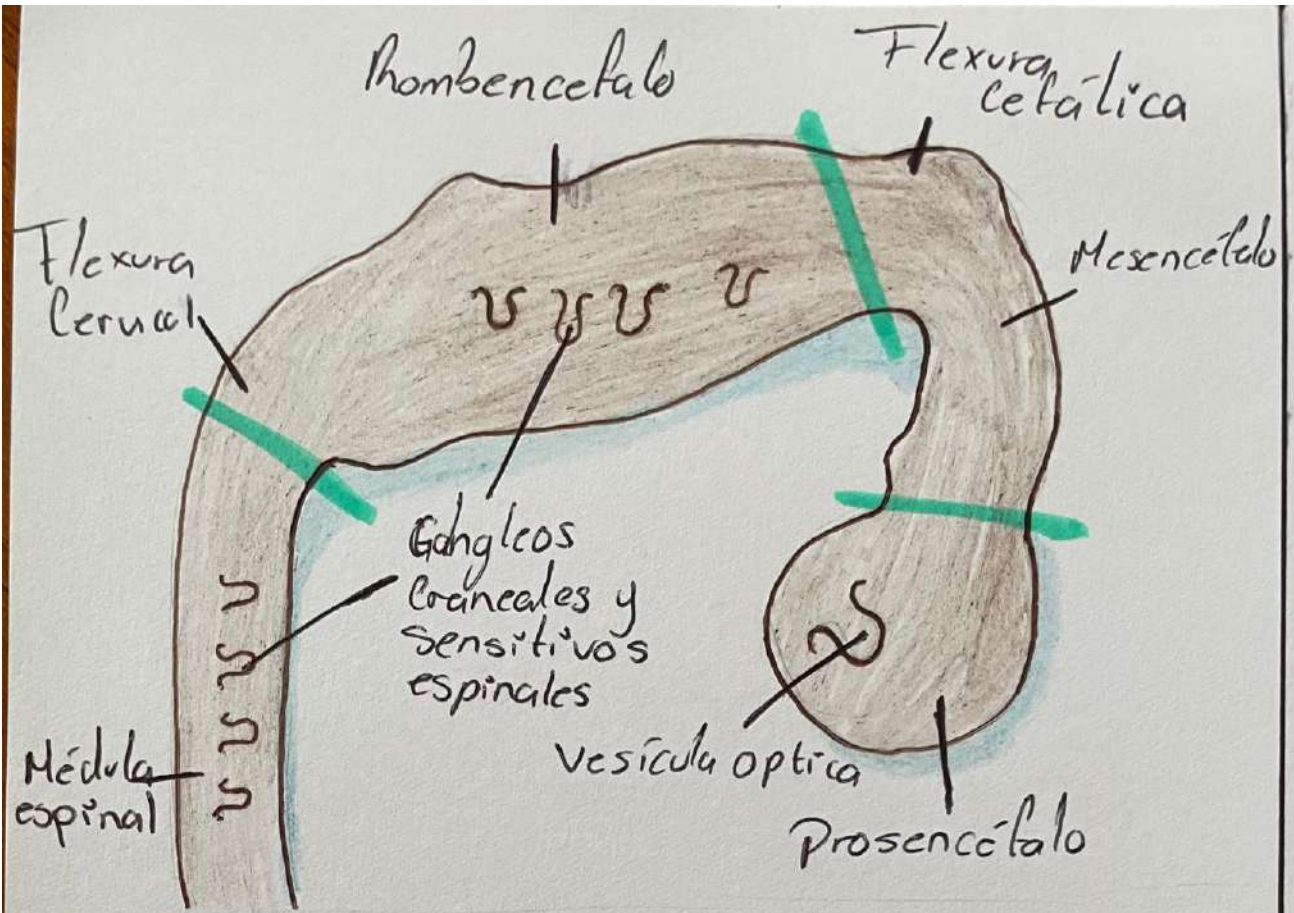 Rhombencefalo
Flexura
Cefálica
Flexura
Cervical
Mesencéfalo
Gángleos
Craneales y
sensitivos
espinales
Médula
espinal
Vesícula optica
Prosencéfalo